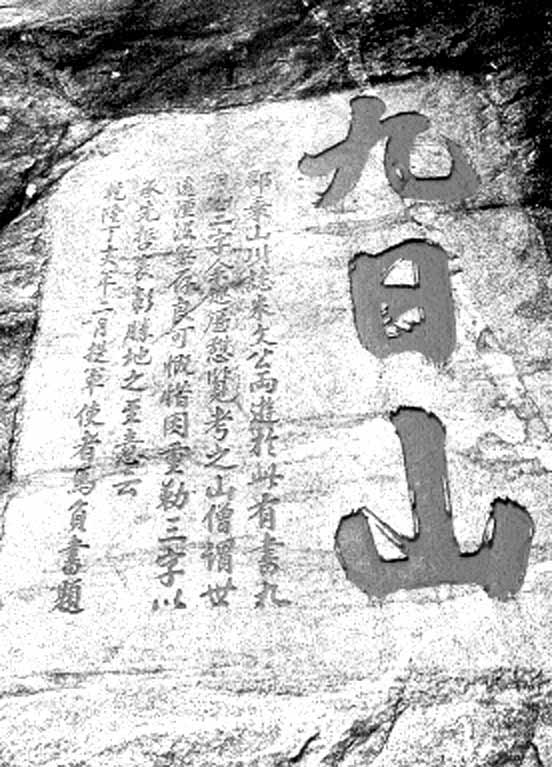 九日山
郡乘山川誌朱文公兩遊於此有書九
日山三字余憩覽考之山僧謂世
遠湮沒無存良可慨惜因重勒三字以
永先哲表彰勝地之至意云
乾隆丁亥年二月提軍使者馬負書題